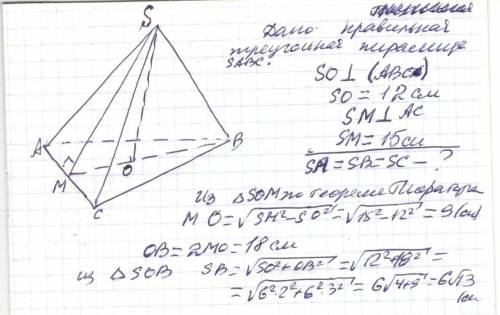 S
A
B
M
O
C
Дано правильная
треугольная пирамида
SABC.
SO⊥(ABC)
SO=12см
SM⊥AC
SM=15см
SA=SB=SC-?
Из △SOM по теореме Пифагора
MO=√SM²-SO²=√15²-12²=9(см)
OB=2MO=18см
из △SOB SB=√SO²+OB²=√12²+18²=
=√6²·2²+6²·3²=6√4+9=6√13
см